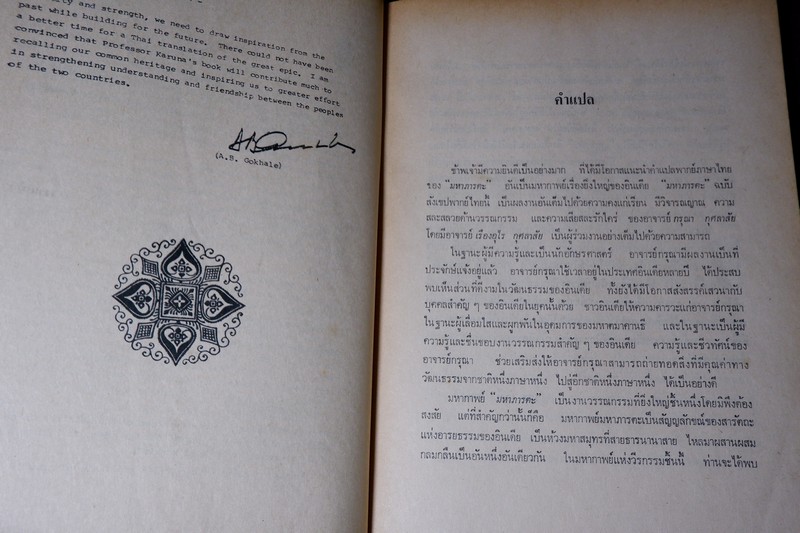 ity and strength, we need to draw inspiration from the
past while building for the future. There could not have been
a better time for a Thai translation of the great epic. I am
convinced that Professor Karuna's book will contribute much to
recalling our common heritage and inspiring us to greater effort
in strengthening understanding and friendship between the peoples
of the two countries.
(A.B. Gokhale)
คำแปล
ข้าพเจ้ามีความยินดีเป็นอย่างมาก ที่ได้มีโอกาสแนะนำคำแปลพากย์ภาษาไทย
ของ "มหาภารตะ" อันเป็นมหากาพย์เรื่องยิ่งใหญ่ของอินเดีย "มหาภารตะ" ฉบับ
สังเขปพากย์ไทยนี้ เป็นผลงานอันเต็มไปด้วยความคงแก่เรียน มีวิจารณญาณ ความ
สละสลวยด้านวรรณกรรม และความเสียสละรักใคร่ ของอาจารย์ กรุณา กุศลาสัย
โดยมีอาจารย์ เรืองอุไร กุศลาสัย เป็นผู้ร่วมงานอย่างเต็มไปด้วยความสามารถ
ในฐานะผู้มีความรู้และเป็นนักอักษรศาสตร์ อาจารย์กรุณามีผลงานเป็นที่
ประจักษ์แจ้งอยู่แล้ว อาจารย์กรุณาใช้เวลาอยู่ในประเทศอินเดียหลายปี ได้ประสบ
พบเห็นส่วนที่ดีงามในวัฒนธรรมของอินเดีย ทั้งยังได้มีโอกาสสังสรรค์เสวนากับ
บุคคลสำคัญ ๆ ของอินเดียในยุคนั้นด้วย ชาวอินเดียให้ความคารวะแก่อาจารย์กรุณา
ในฐานะผู้เลื่อมใสและผูกพันในอุดมการของมหาตมาคานธี และในฐานะเป็นผู้มี
ความรู้และชื่นชอบงานวรรณกรรมสำคัญ ๆ ของอินเดีย ความรู้และชีวทัศน์ของ
อาจารย์กรุณา ช่วยเสริมส่งให้อาจารย์กรุณาสามารถถ่ายทอดสิ่งที่มีคุณค่าทาง
วัฒนธรรมจากชาติหนึ่งภาษาหนึ่ง ไปสู่อีกชาติหนึ่งภาษาหนึ่ง ได้เป็นอย่างดี
มหากาพย์ "มหาภารตะ" เป็นงานวรรณกรรมที่ยิ่งใหญ่ชิ้นหนึ่งโดยมิพึงต้อง
สงสัย แต่ที่สำคัญกว่านั้นก็คือ มหากาพย์มหาภารตะเป็นสัญญลักษณ์ของสารัตถะ
แห่งอารยธรรมของอินเดีย เป็นห้วงมหาสมุทรที่สายธารนานาสาย ไหลมาผสานผสม
กลมกลืนเป็นอันหนึ่งอันเดียวกัน ในมหากาพย์แห่งวีรกรรมชิ้นนี้ ท่านจะได้พบ